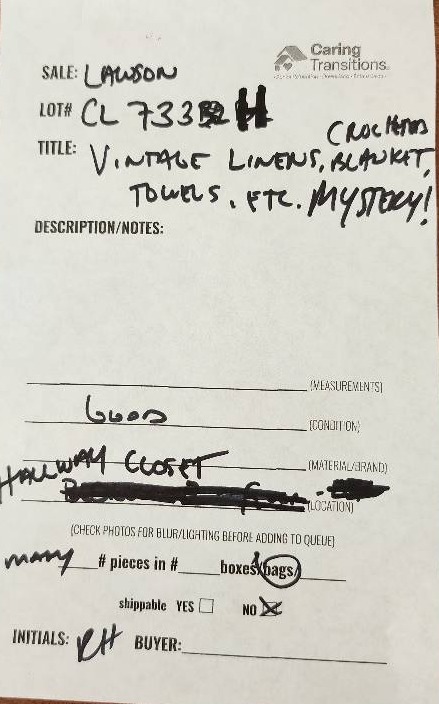 Caring
Transitions
SALE: LAWSON
LOT# CL 733
CROCHETED
TITLE: VINTAGE LINENS, BLANKET,
TOWELS, ETC. MYSTERY!
DESCRIPTION/NOTES:
(MEASUREMENTS)
GOOD (CONDITION)
(MATERIAL/BRAND)
HALLWAY CLOSET
(LOCATION)
(CHECK PHOTOS FOR BLUR/LIGHTING BEFORE ADDING TO QUEUE)
MANY # pieces in # boxes/bags/
shippable YES NO
INITIALS: RH BUYER: